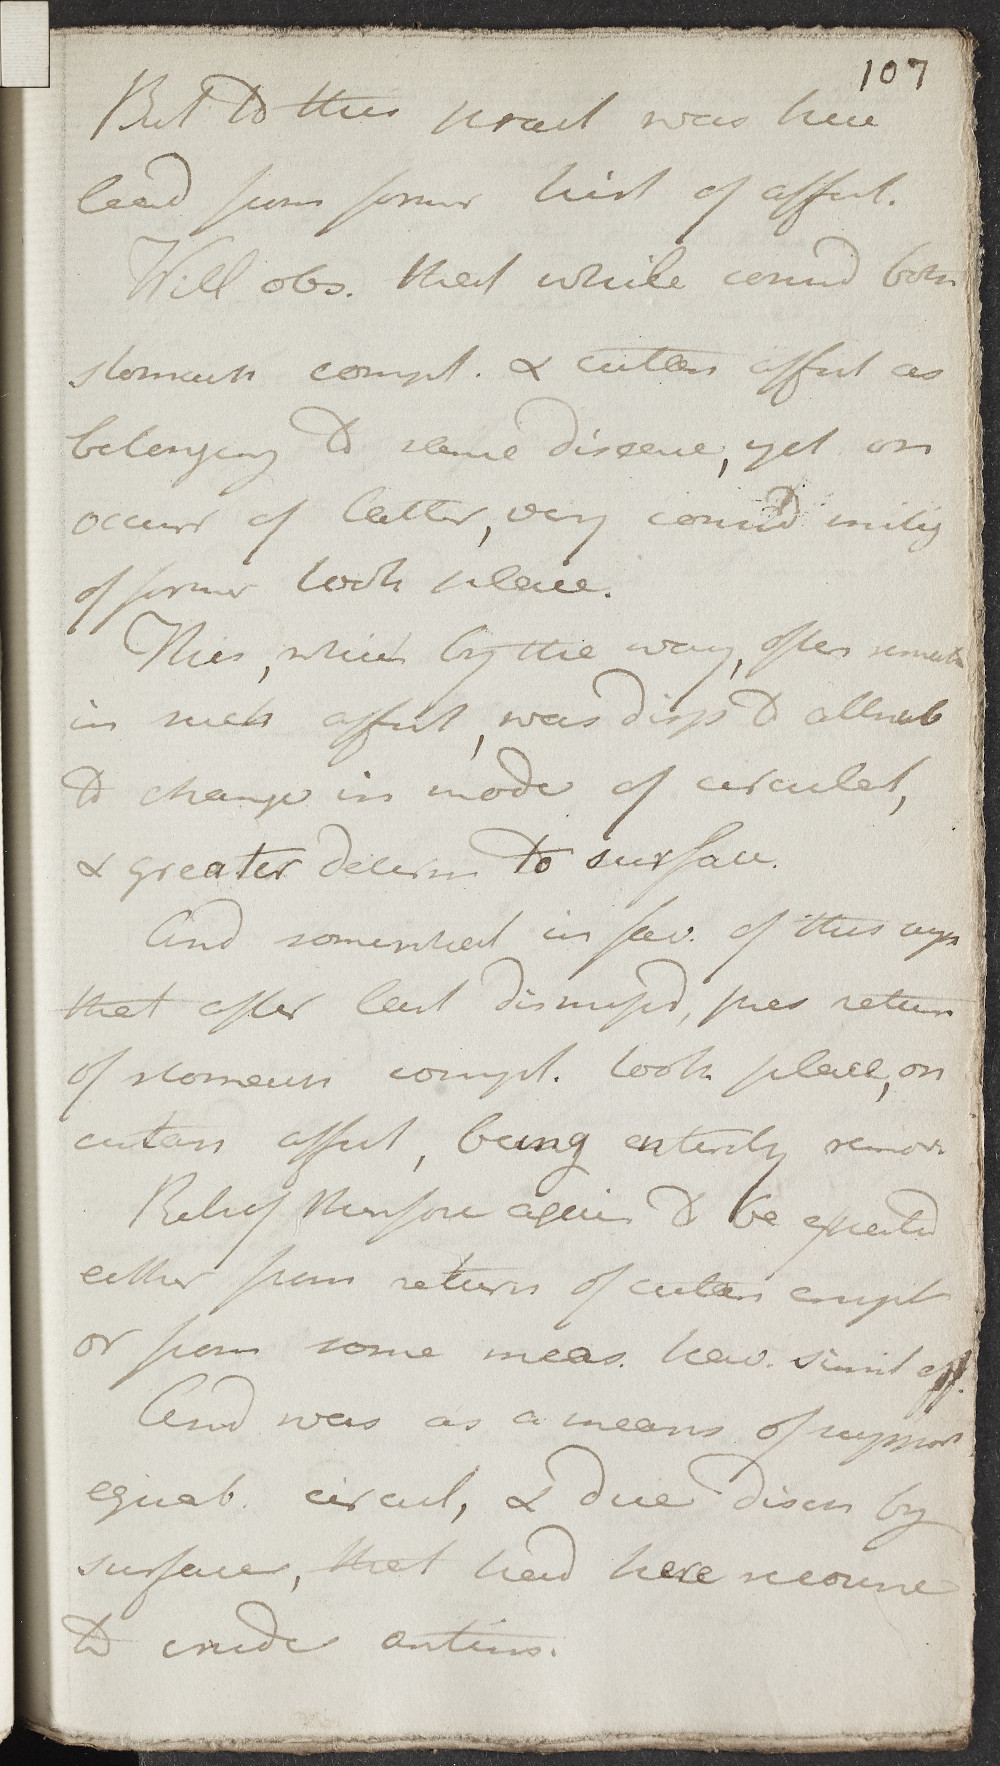 107
But to this pract was here
lead from former hist of affect.
Will obs. that while consid both
stomach compl. & cutan affect as
belonging to same disease, yet on
occurr of latter, very consid mitig
of former took place.
This, which by the way, often remark
in such affect, was disp to attrib
to change in mode of circulat,
& greater determ to surface.
And somewhat in fav. of this supp
that after last dismiss'd, pres return
of stomach compl. took place, on
cutan affect, being entirely remov
Relief therefore again to be expected
either from return of cutan erupt
or from some meas. hav. simil eff.
And was as a means of support
equab. circul, & due disch by
surface, that had here recourse
to crude antim.